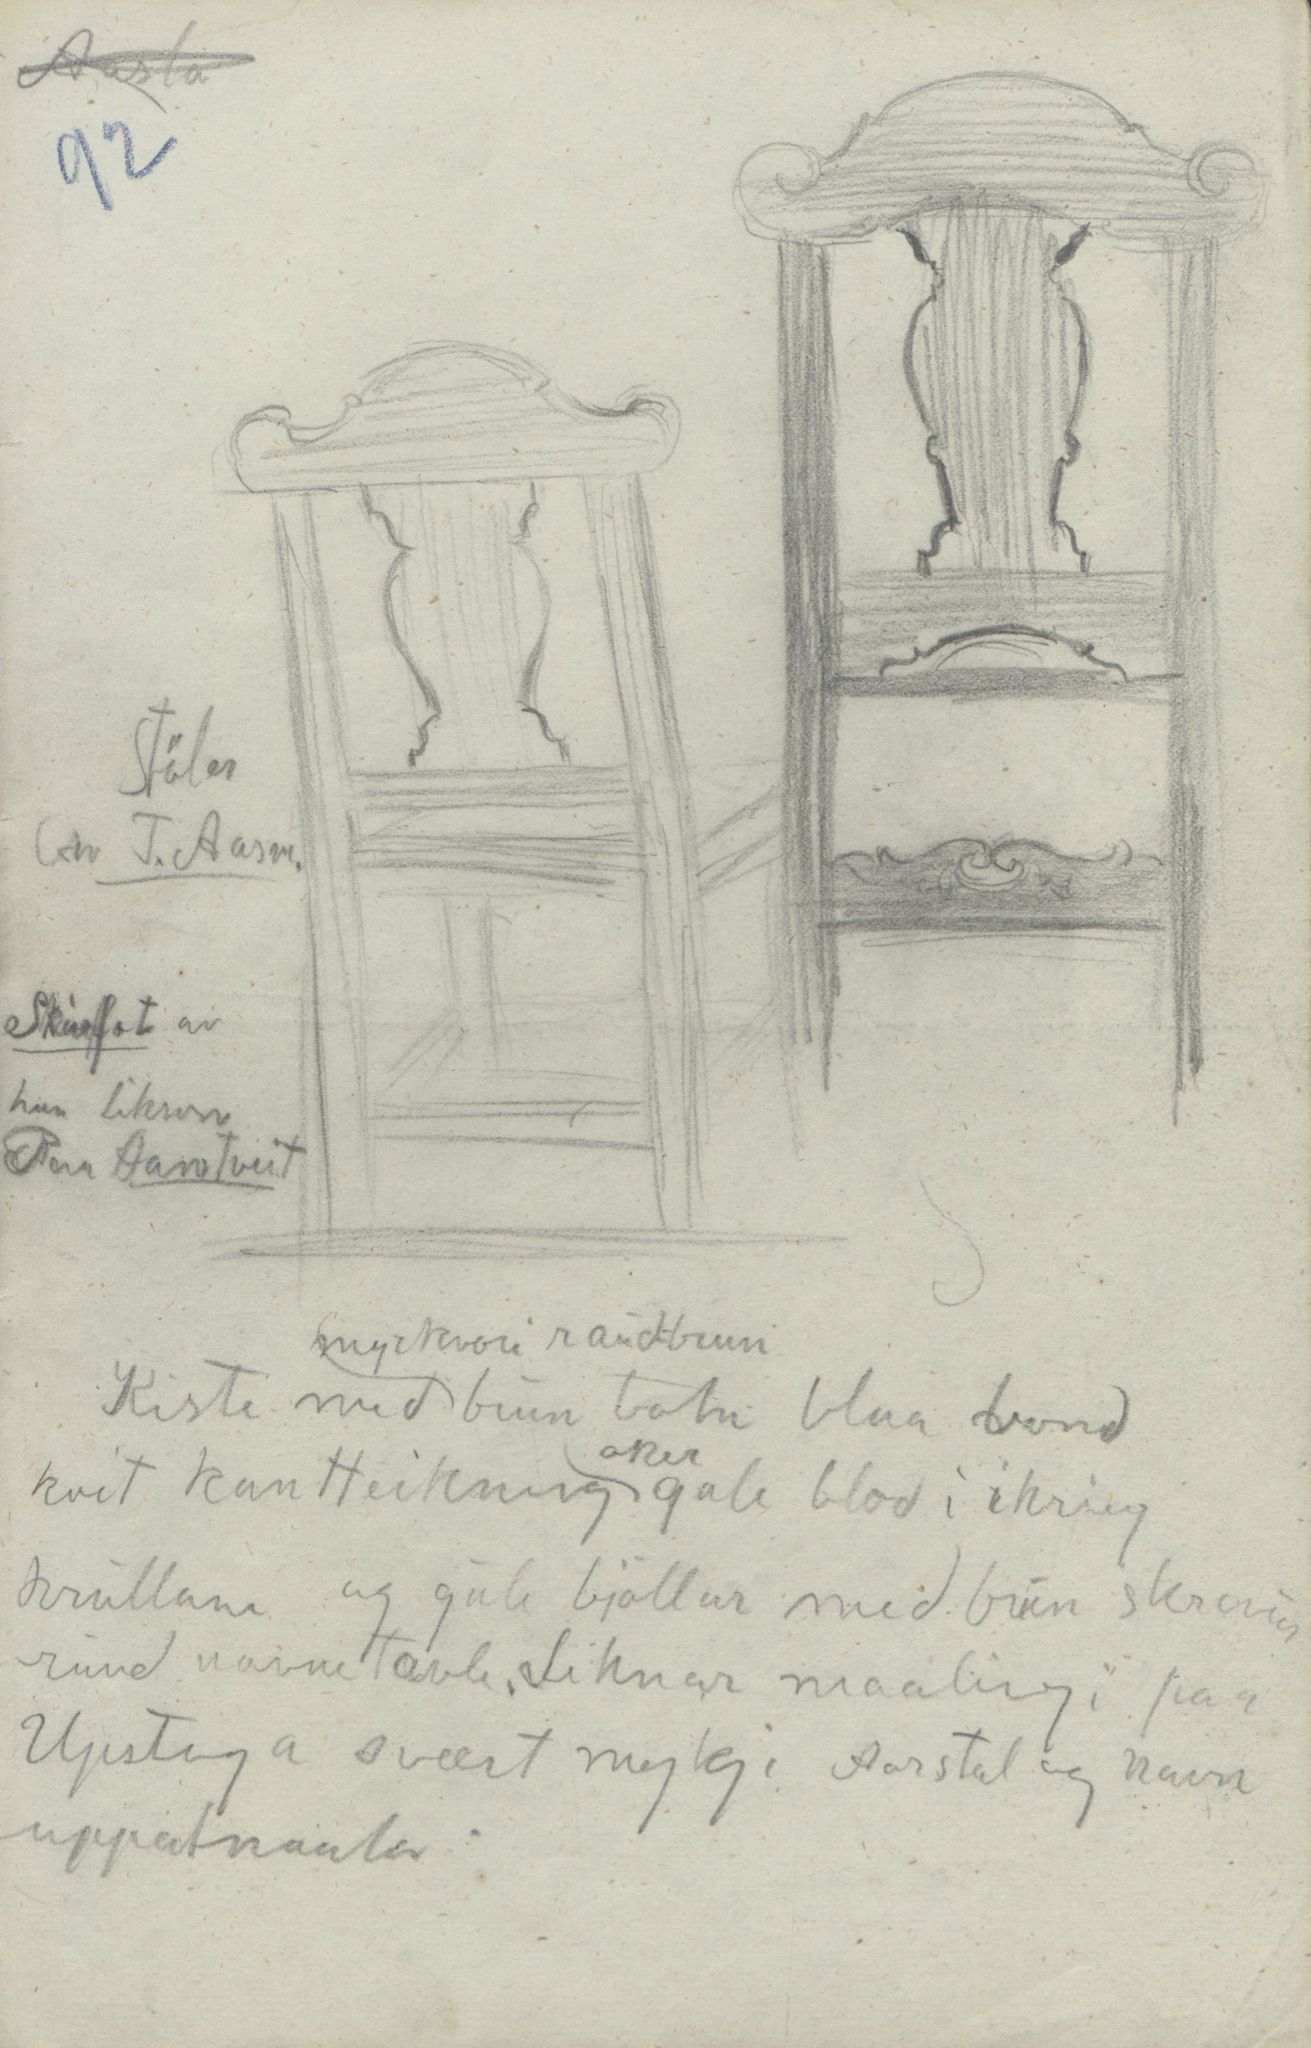 Aasla
92
Stólar
av T. Aasm.
Skurfat av
Per Aamtveit
myrkvori raudbrun
Kiste med brun botn blaa bond
kvit kantteikning oker gule blod i ikring
krullane og gule bjöllur med brun skravür
rund navnetavle. Liknar maalingi paa
Upstuga svært mykji Aarstal og navn
uppatmaala.